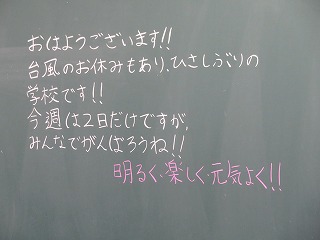 おはようございます!!
台風のお休みもあり、ひさしぶりの
学校です!!
今週は2日だけですが、
みんなでがんばろうね!!
明るく・楽しく・元気よく!!